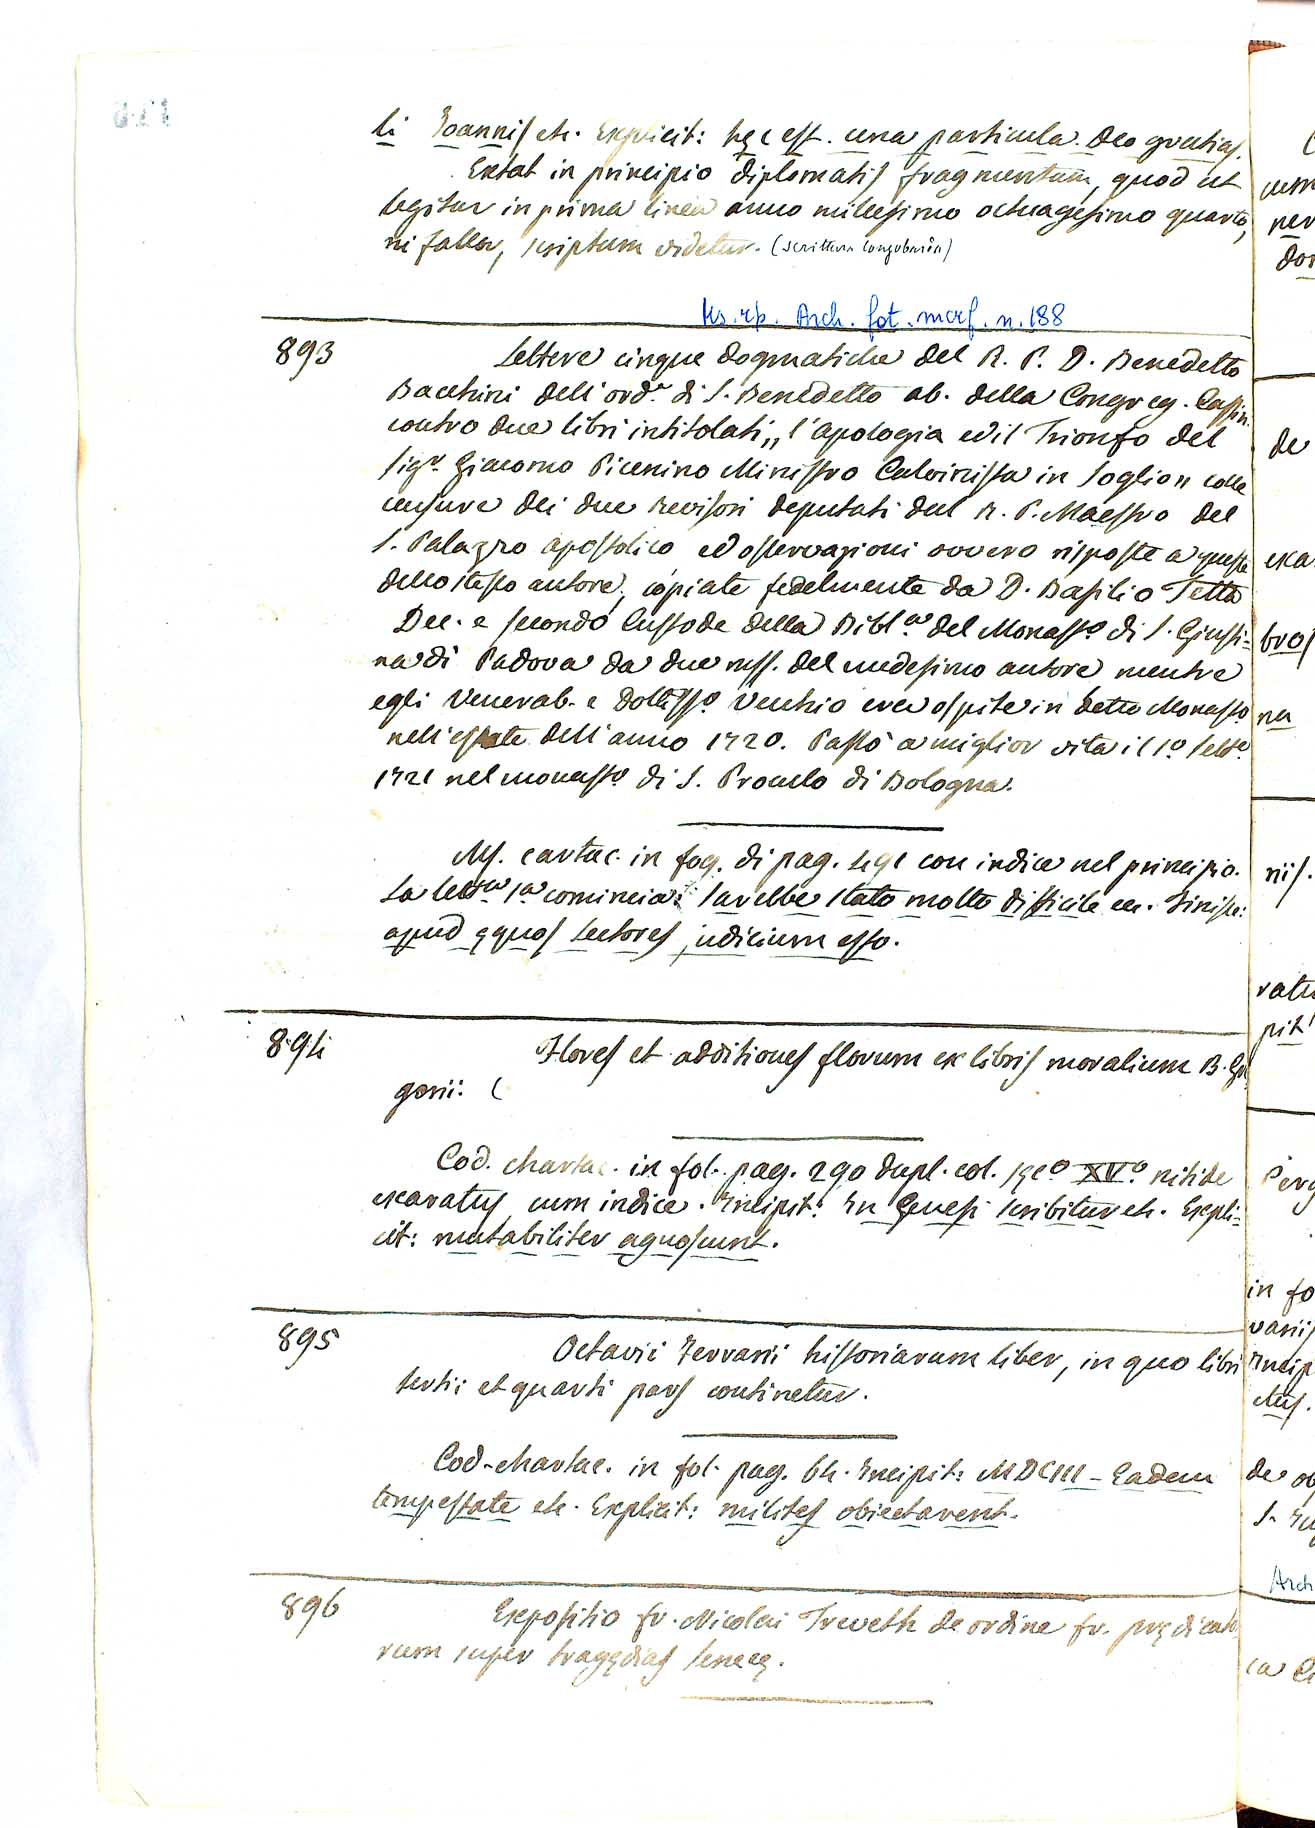 li Joannis etc. Explicit: hęc est una particula. Deo gratias.
Extat in principio diplomatis fragmentum, quod ut
legitur in prima linea anno millesimo octuagesimo quarto,
ni fallor, scriptum videtur. (scrittura longobarda)
Ms. rip. Arch. fot. marf. n. 188
893
Lettere cinque dogmatiche del R. P. D. Benedetto
Bacchini dell'ord.e di S. Benedetto ab. della Congreg. Cassin.
contro due libri intitolati „ l'apologia ed il Trionfo del
sig.r Giacomo Picenino Ministro Calvinista in Soglio „ colle
censure dei due Revisori deputati dal R. P. Maestro del
S. Palazzo apostolico ed osservazioni ovvero risposte a queste
dello stesso autore, copiate fedelmente da D. Basilio Tetta
Dec. e secondo Custode della Bibl.a del Monast.o di S. Giusti=
na di Padova da due mss. del medesimo autore mentre
egli Venerab. e Dottiss.o Vecchio era ospite in detto Monast.o
nell'estate dell'anno 1720. Passò a miglior vita il 1.o Sett.e
1721 nel monast.o di S. Proculo di Bologna.
Ms. cartac. in fog. di pag. 491 con indice nel principio.
La lett.a 1.a comincia: Sarebbe stato molto difficile ec. Finisce:
apud ęquos Lectores judicium esto.
894
Flores et additiones florum ex libris moralium B. Gre
gorii: (
Cod. chartac. in fol. pag. 290 dupl. col. sęc.o XV.o nitide
exaratus cum indice. Incipit: In Genesi scribitur etc. Expli=
cit: mutabiliter agnoscunt.
895
Octavii Ferrarii historiarum liber, in quo libri
tertii et quarti pars continetur.
Cod. chartac. in fol. pag. 64. Incipit: MDCIII – Eadem
tempestate etc. Explicit: milites obiectarent.
896
Expositio fr. Nicolai Treveth de ordine fr. prędicato
rum super tragędias Senecę.